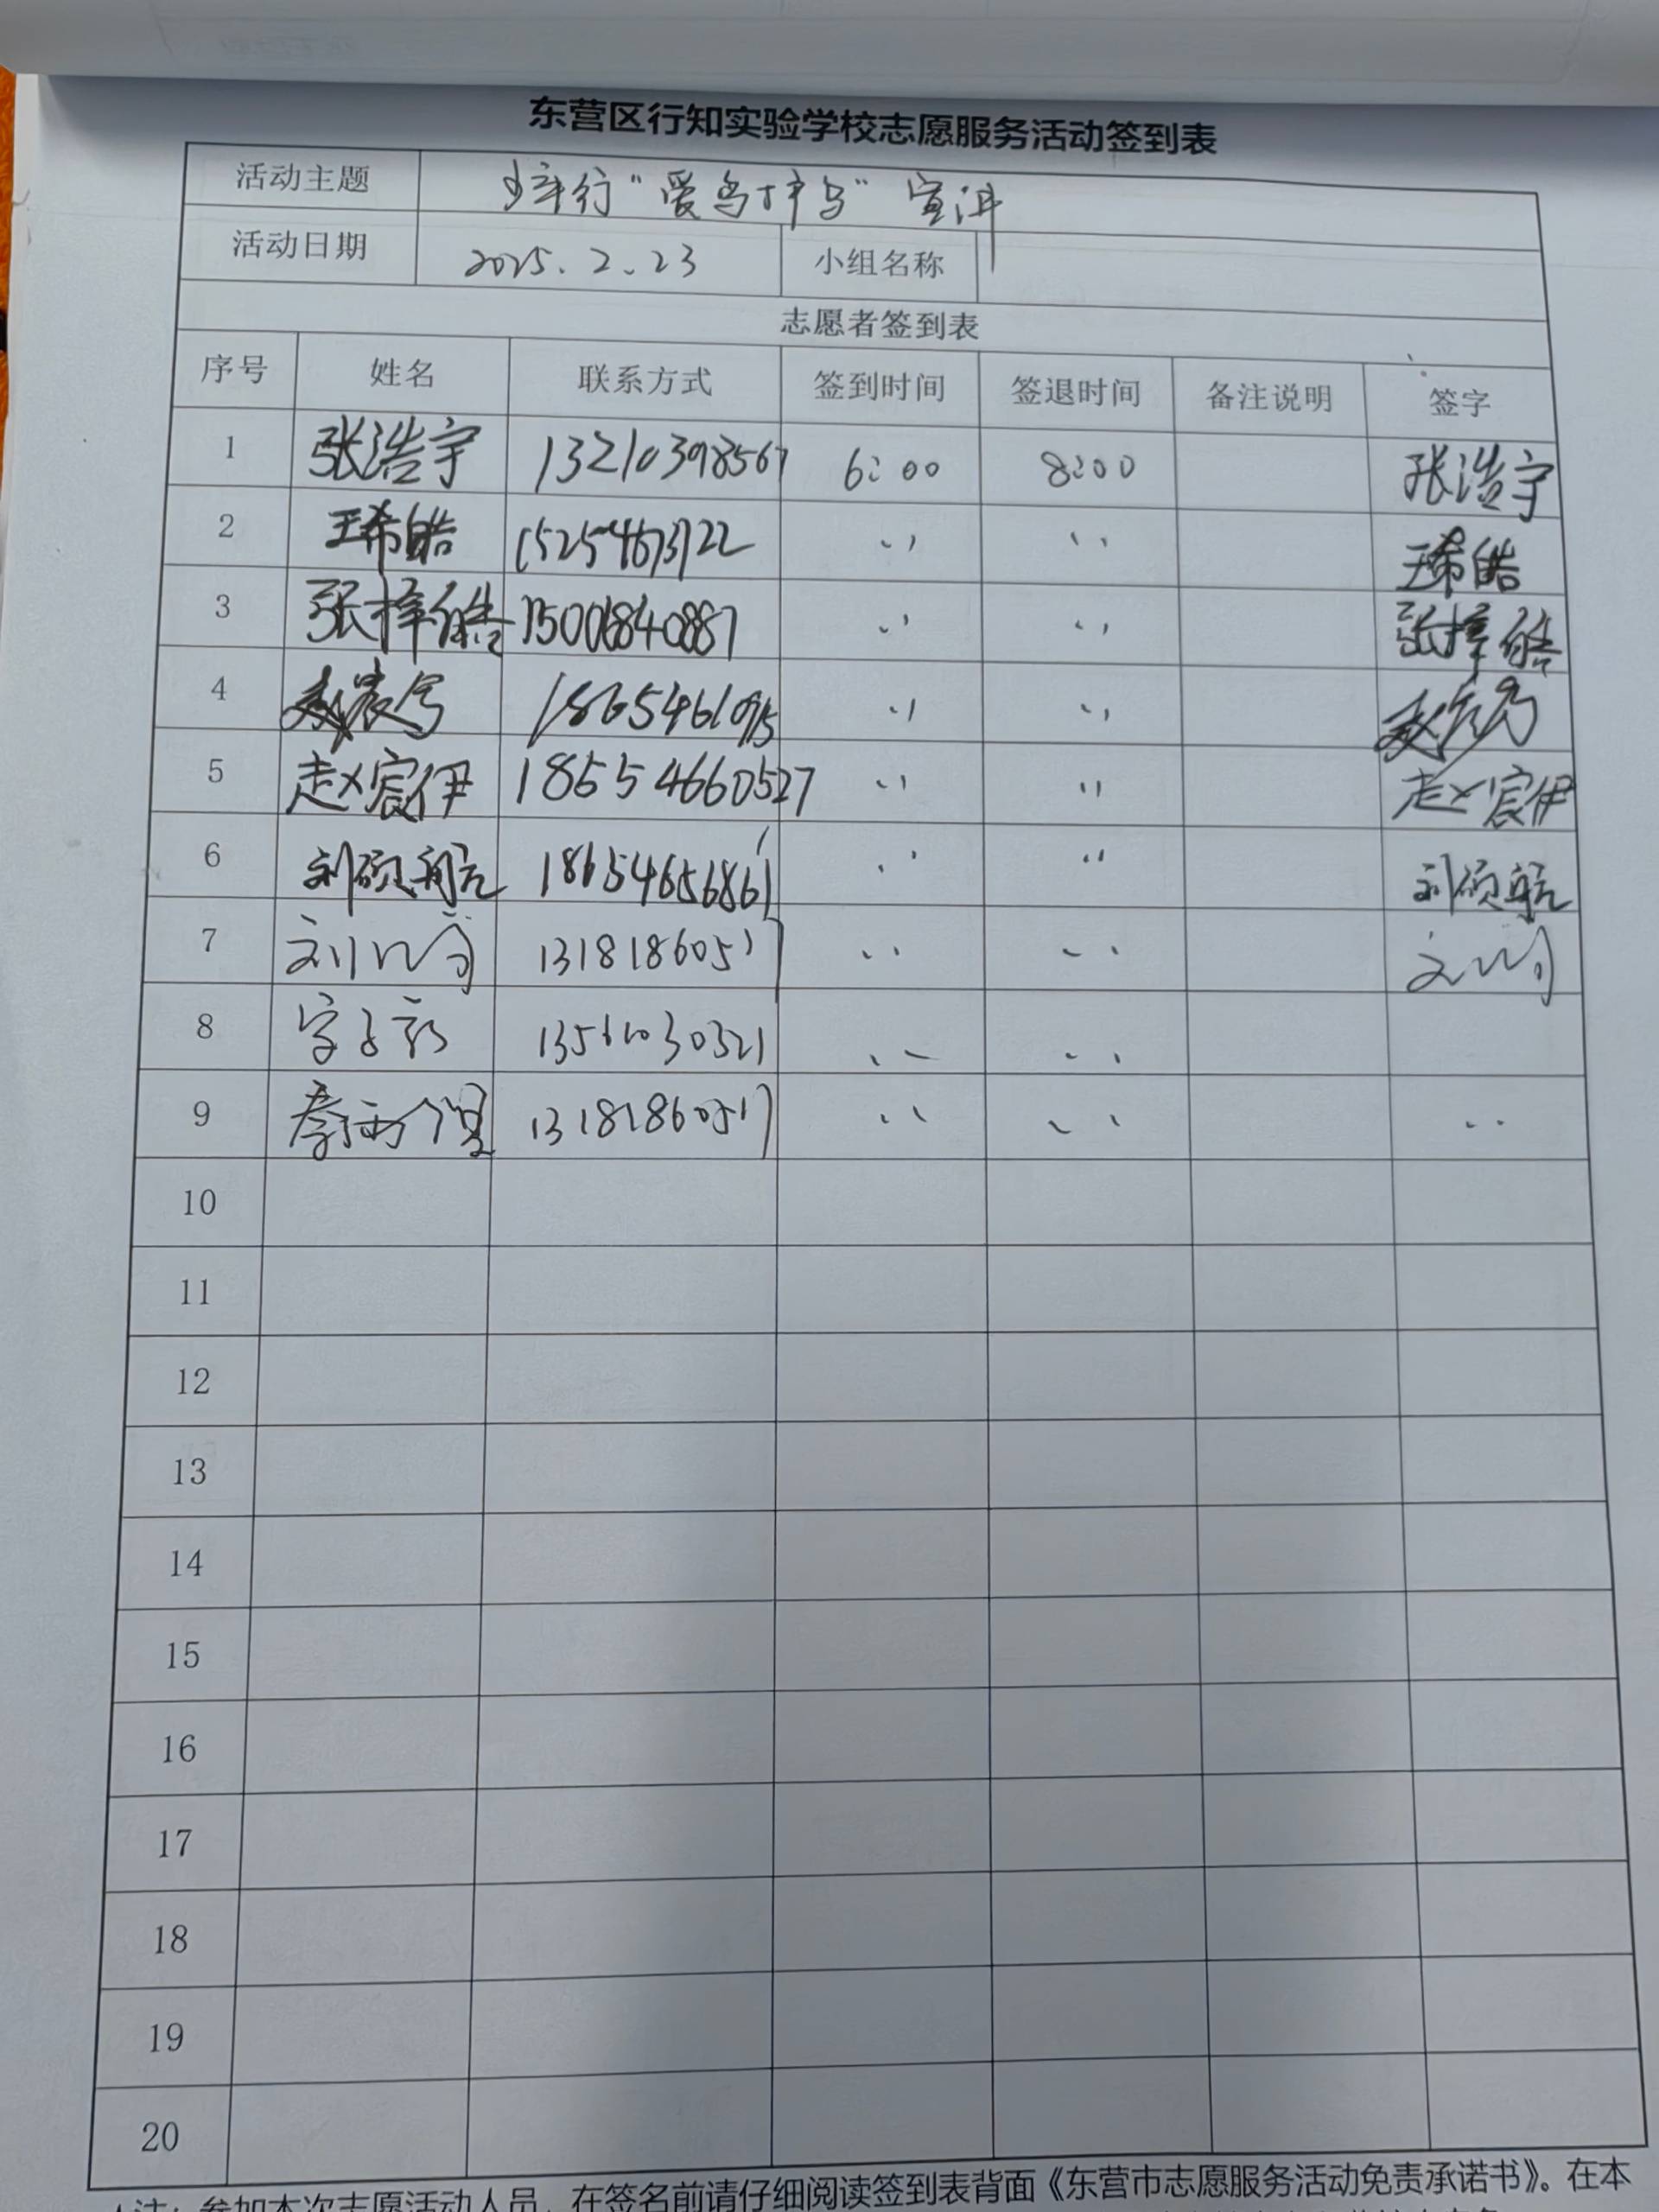 东营区行知实验学校志愿服务活动签到表
活动主题 步年行“爱鸟护鸟”宣讲
活动日期 2025.2.23 小组名称
志愿者签到表
序号 姓名 联系方式 签到时间 签退时间 备注说明 签字
1 张浩宇 13210398567 6:00 8:00 张浩宇
2 王希皓 15254673722 〃 〃 王希皓
3 张梓皓 15006840887 〃 〃 张梓皓
4 赵 〃 〃 赵
5 赵宸伊 18654660527 〃 〃 赵宸伊
6 刘硕航 18654656861 〃 〃 刘硕航
7 刘 13181860517 〃 〃
8 13561030321 〃 〃
9 13181860517 〃 〃 〃
10
11
12
13
14
15
16
17
18
19
20
注：参加本次志愿活动人员，在签名前请仔细阅读签到表背面《东营市志愿服务活动免责承诺书》。在本